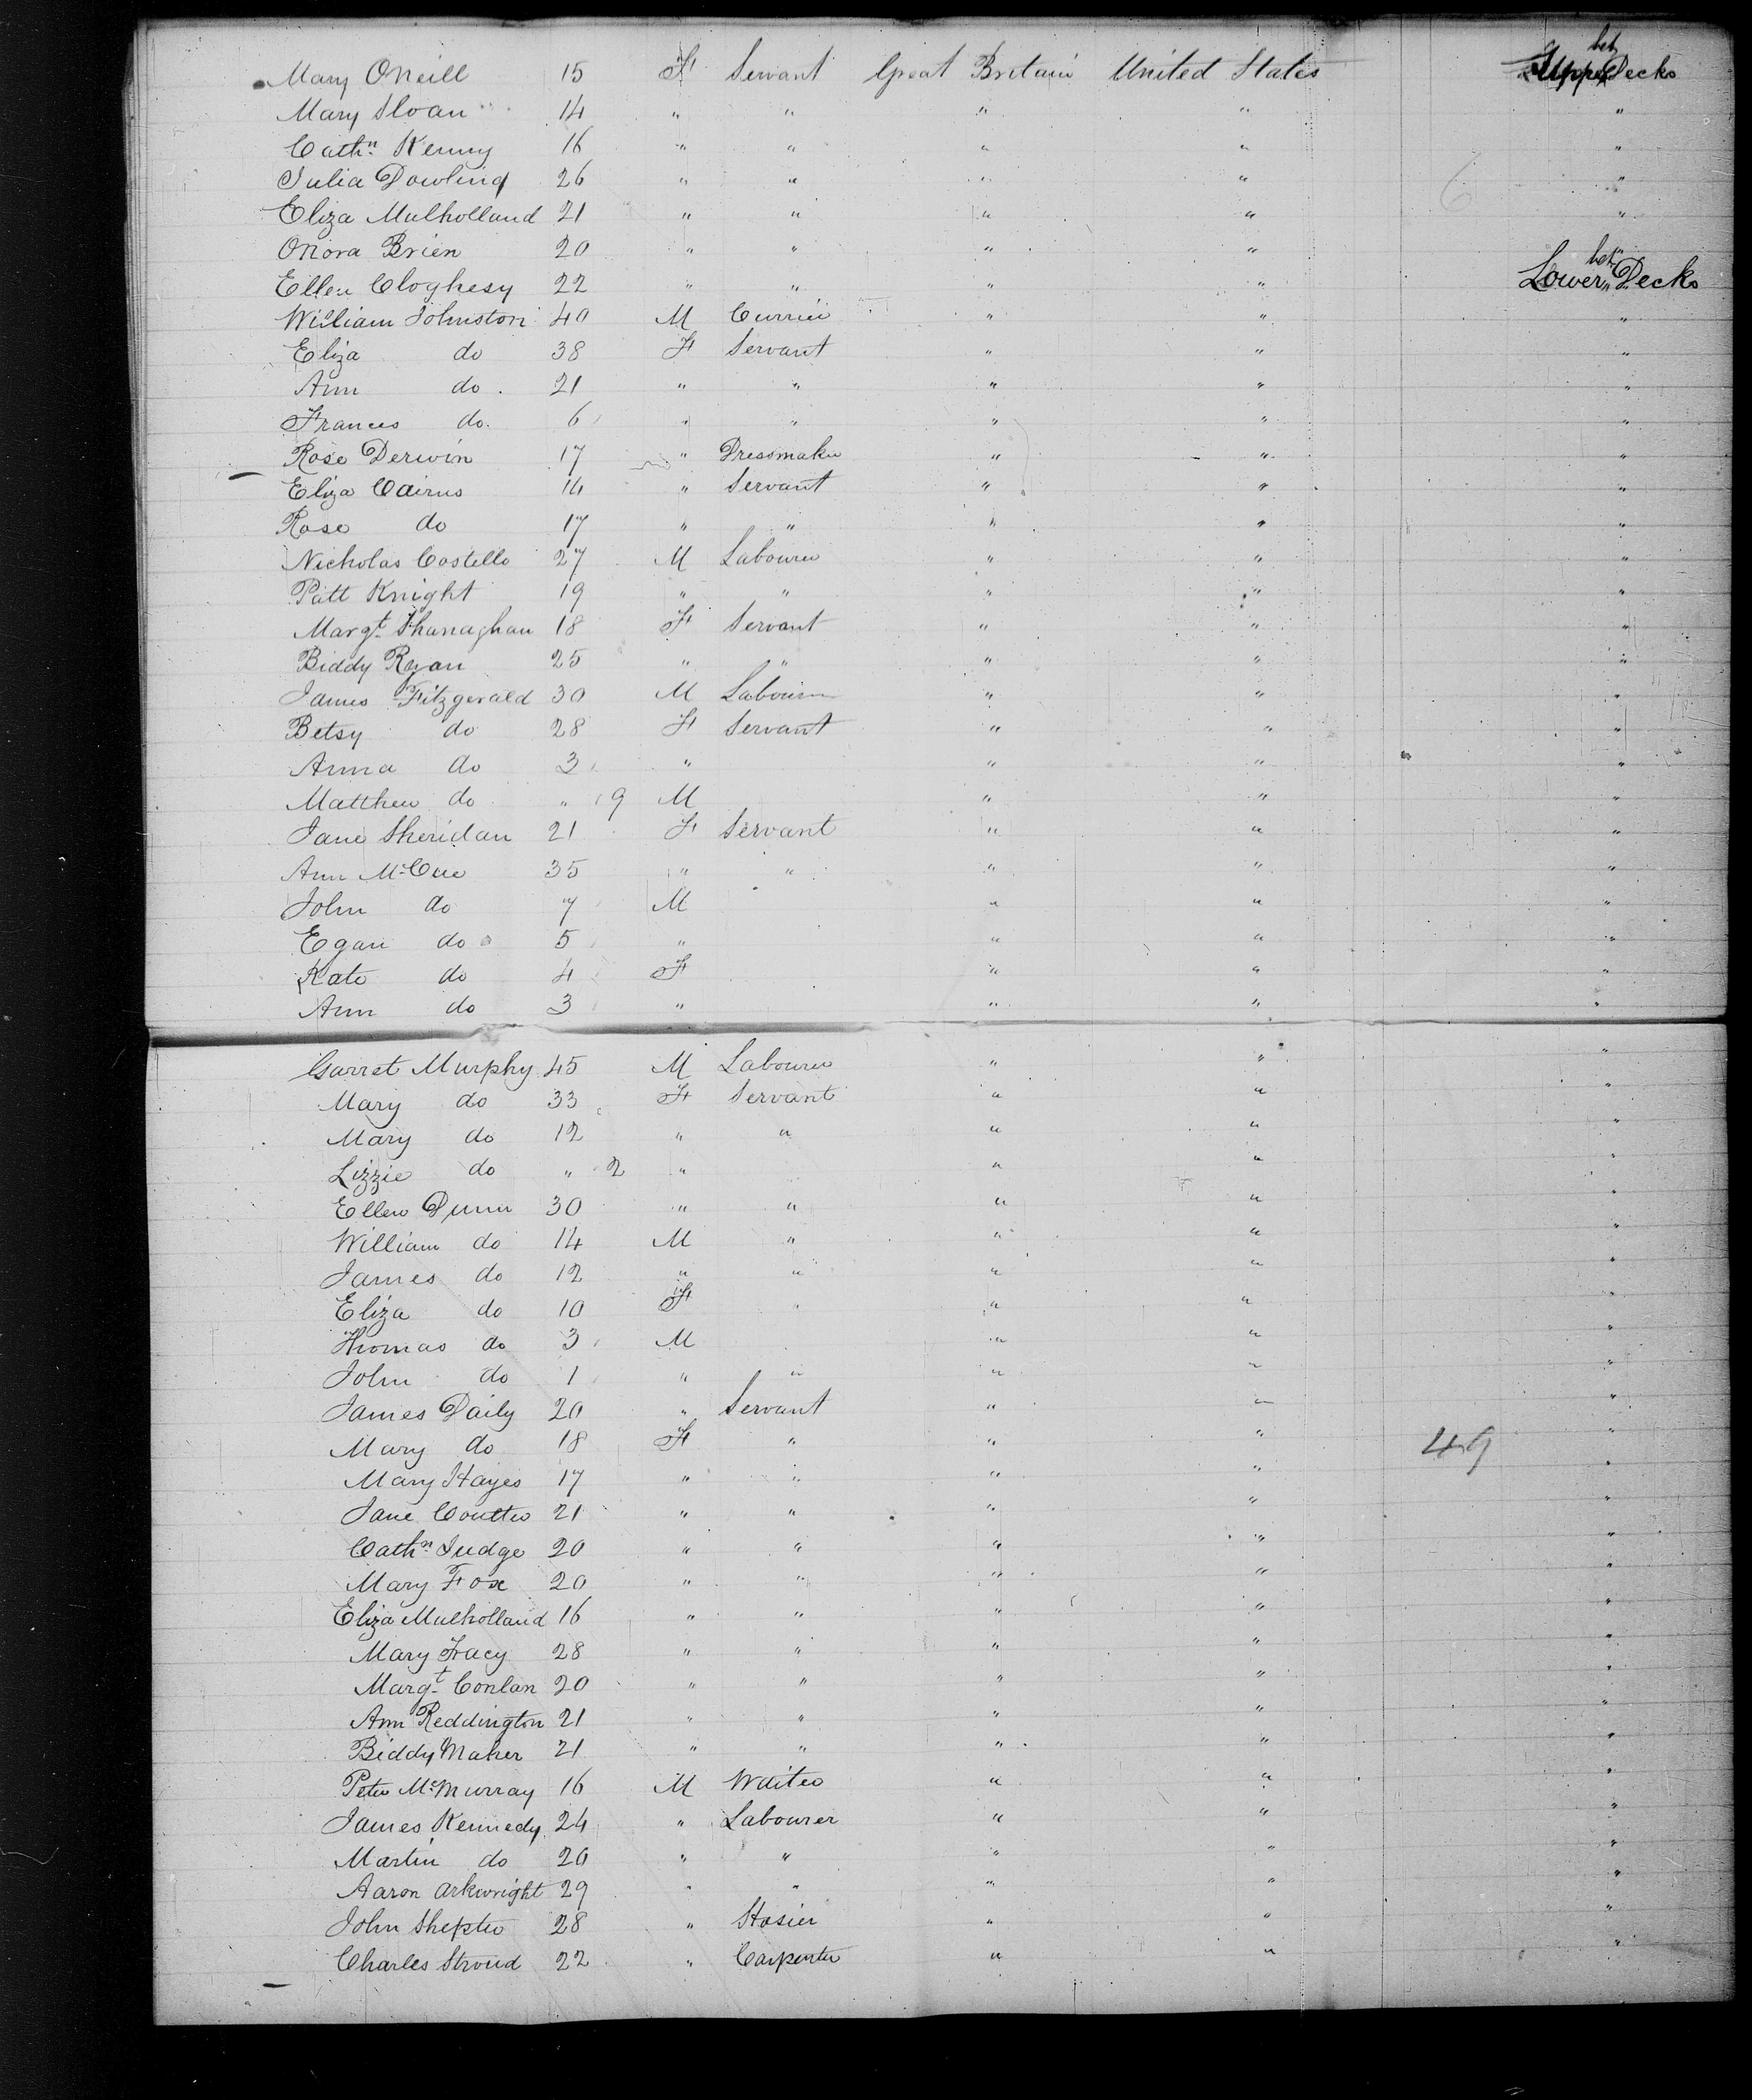 Mary ONeill 15 F Servant Great Britain United States Upper bet Decks
Mary Sloan 14 " " " " "
Cathn Kenny 16 " " " " "
Julia Dowling 26 " " " " "
6
Eliza Mulholland 21 " " " " "
Onora Brien 20 " " " " "
Ellen Cloghesy 22 " " " " Lower bet Decks
William Johnston 40 M Currier " " "
Eliza do 38 F Servant " " "
Ann do 21 " " " " "
Frances do 6 " " " " "
Rose Derwin 17 " Dressmaker " " "
Eliza Cairns 14 " Servant " " "
Rose do 17 " " " " "
Nicholas Costello 27 M Labourer " " "
Patt Knight 19 " " " " "
Margt Shanaghan 18 F Servant " " "
Biddy Ryan 25 " " " " "
James Fitzgerald 30 M Labourer " " "
Betsy do 28 F Servant " " "
Anna do 3 " " " "
Matthew do " 9 M " " "
Jane Sheridan 21 F Servant " " "
Ann McCue 35 " " " " "
John do 7 M " " "
Egan do 5 " " " "
Kate do 4 F " " "
Ann do 3 " " " "
Garret Murphy 45 M Labourer " " "
Mary do 33 F Servant " " "
Mary do 12 " " " " "
Lizzie do " 2 " " " "
Ellen Dunn 30 " " " " "
William do 14 M " " " "
James do 12 " " " " "
Eliza do 10 F " " " "
Thomas do 3 M " " "
John do 1 " " " " "
James Daily 20 " Servant " " "
Mary do 18 F " " " 49 "
Mary Hayes 17 " " " " "
Jane Coulter 21 " " " " "
Cathn Judge 20 " " " " "
Mary Fox 20 " " " " "
Eliza Mulholland 16 " " " " "
Mary Tracy 28 " " " " "
Margt Conlan 20 " " " " "
Ann Reddington 21 " " " " "
Biddy Maher 21 " " " " "
Peter McMurray 16 M Waiter " " "
James Kennedy 24 " Labourer " " "
Martin do 20 " " " " "
Aaron Arkwright 29 " " " " "
John Shepter 28 " Hosier " " "
Charles Stroud 22 " Carpenter " " "